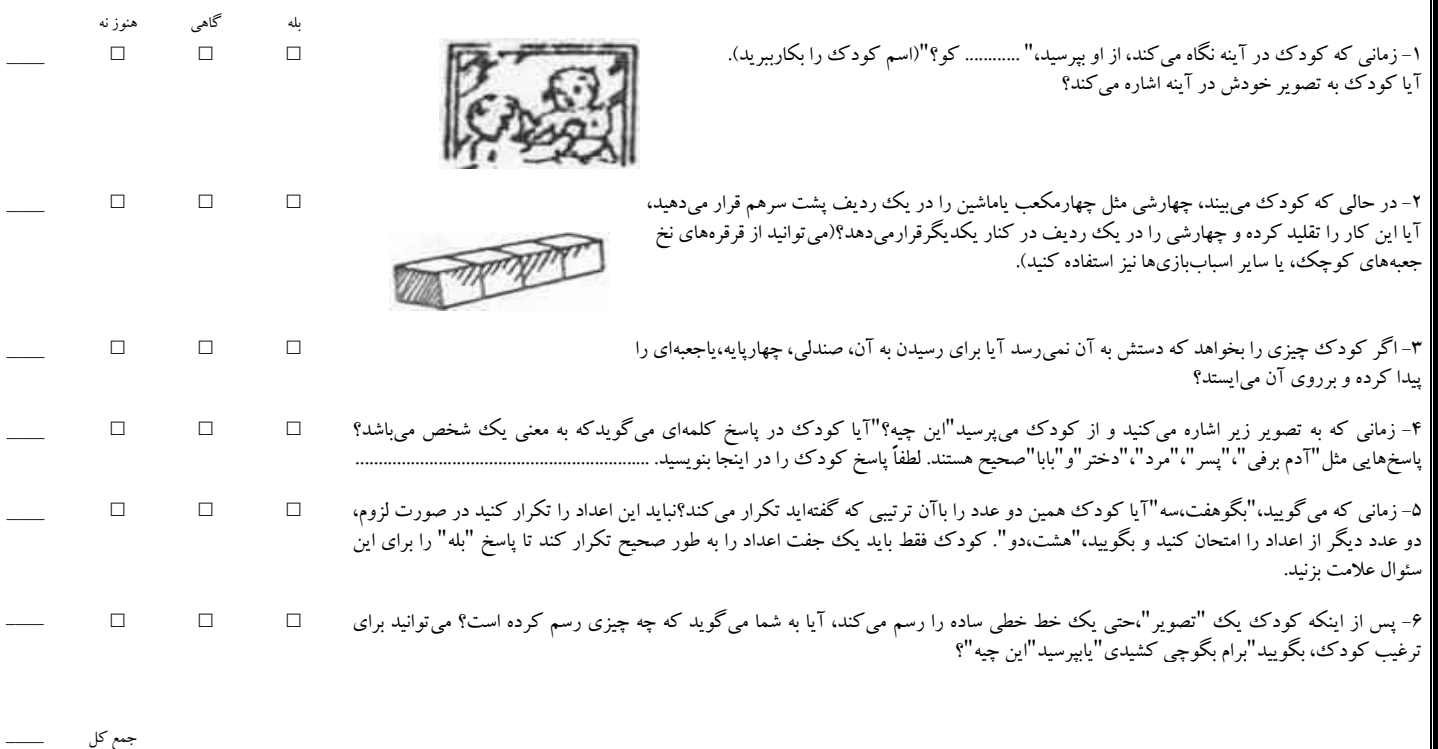 بله گاهی هنوز نه
۱- زمانی که کودک در آینه نگاه می‌کند، از او بپرسید،" ............ کو؟"(اسم کودک را بکارببرید). □ □ □ ____
آیا کودک به تصویر خودش در آینه اشاره می‌کند؟
۲- در حالی که کودک می‌بیند، چهارشی مثل چهارمکعب یاماشین را در یک ردیف پشت سرهم قرار می‌دهید، □ □ □ ____
آیا این کار را تقلید کرده و چهارشی را در یک ردیف در کنار یکدیگرقرارمی‌دهد؟(می‌توانید از قرقره‌های نخ
جعبه‌های کوچک، یا سایر اسباب‌بازی‌ها نیز استفاده کنید).
۳- اگر کودک چیزی را بخواهد که دستش به آن نمی‌رسد آیا برای رسیدن به آن، صندلی، چهارپایه،یاجعبه‌ای را □ □ □ ____
پیدا کرده و برروی آن می‌ایستد؟
۴- زمانی که به تصویر زیر اشاره می‌کنید و از کودک می‌پرسید"این چیه؟"آیا کودک در پاسخ کلمه‌ای می‌گویدکه به معنی یک شخص می‌باشد؟ □ □ □ ____
پاسخ‌هایی مثل"آدم برفی"،"پسر"،"مرد"،"دختر"و"بابا"صحیح هستند. لطفاً پاسخ کودک را در اینجا بنویسید. ................................................................
۵- زمانی که می‌گویید،"بگوهفت،سه"آیا کودک همین دو عدد را باآن ترتیبی که گفته‌اید تکرار می‌کند؟نباید این اعداد را تکرار کنید در صورت لزوم، □ □ □ ____
دو عدد دیگر از اعداد را امتحان کنید و بگویید،"هشت،دو". کودک فقط باید یک جفت اعداد را به طور صحیح تکرار کند تا پاسخ "بله" را برای این
سئوال علامت بزنید.
۶- پس از اینکه کودک یک "تصویر"،حتی یک خط خطی ساده را رسم می‌کند، آیا به شما می‌گوید که چه چیزی رسم کرده است؟ می‌توانید برای □ □ □ ____
ترغیب کودک، بگویید"برام بگوچی کشیدی"یابپرسید"این چیه"؟
جمع کل ____